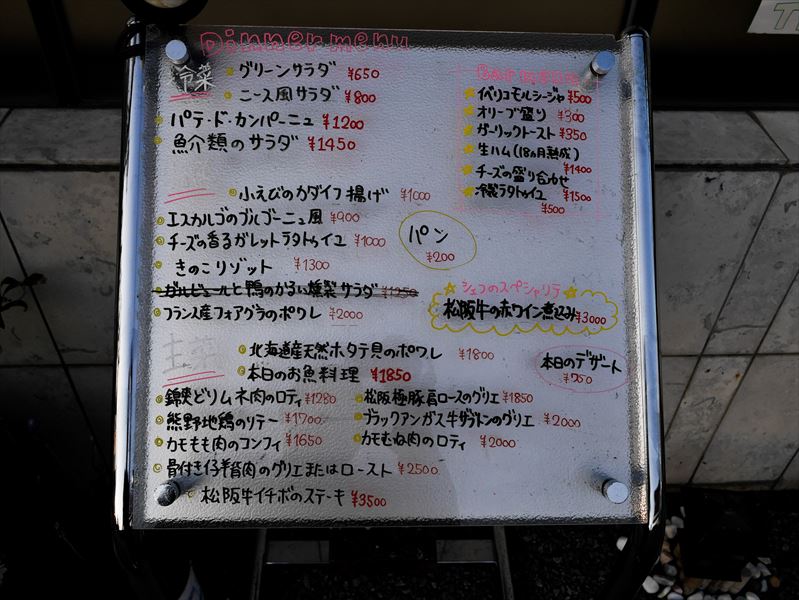 Dinner menu
冷菜
グリーンサラダ ¥650
ニース風サラダ ¥800
パテ・ド・カンパーニュ ¥1200
魚介類のサラダ ¥1450
イベリコモルシージャ ¥500
オリーブ盛り ¥300
ガーリックトースト ¥350
生ハム(18ヵ月熟成) ¥1400
チーズの盛り合わせ ¥1500
冷製ラタトゥイユ ¥500
小えびのカダイフ揚げ ¥1000
エスカルゴのブルゴーニュ風 ¥900
チーズの香るガレットラタトゥイユ ¥1000
きのこリゾット ¥1300
ガルビュールと鴨のかるい燻製サラダ ¥1250
フランス産フォアグラのポワレ ¥2000
パン
¥200
シェフのスペシャリテ
松阪牛の赤ワイン煮込み ¥3000
主菜
北海道産天然ホタテ貝のポワレ ¥1800
本日のお魚料理 ¥1850
本日のデザート
¥750
錦爽どりムネ肉のロティ ¥1280
熊野地鶏のソテー ¥1700
カモもも肉のコンフィ ¥1650
松阪極豚肩ロースのグリエ ¥1850
ブラックアンガス牛ザブトンのグリエ ¥2000
カモむね肉のロティ ¥2000
骨付き仔羊背肉のグリエまたはロースト ¥2500
松阪牛イチボのステーキ ¥3500